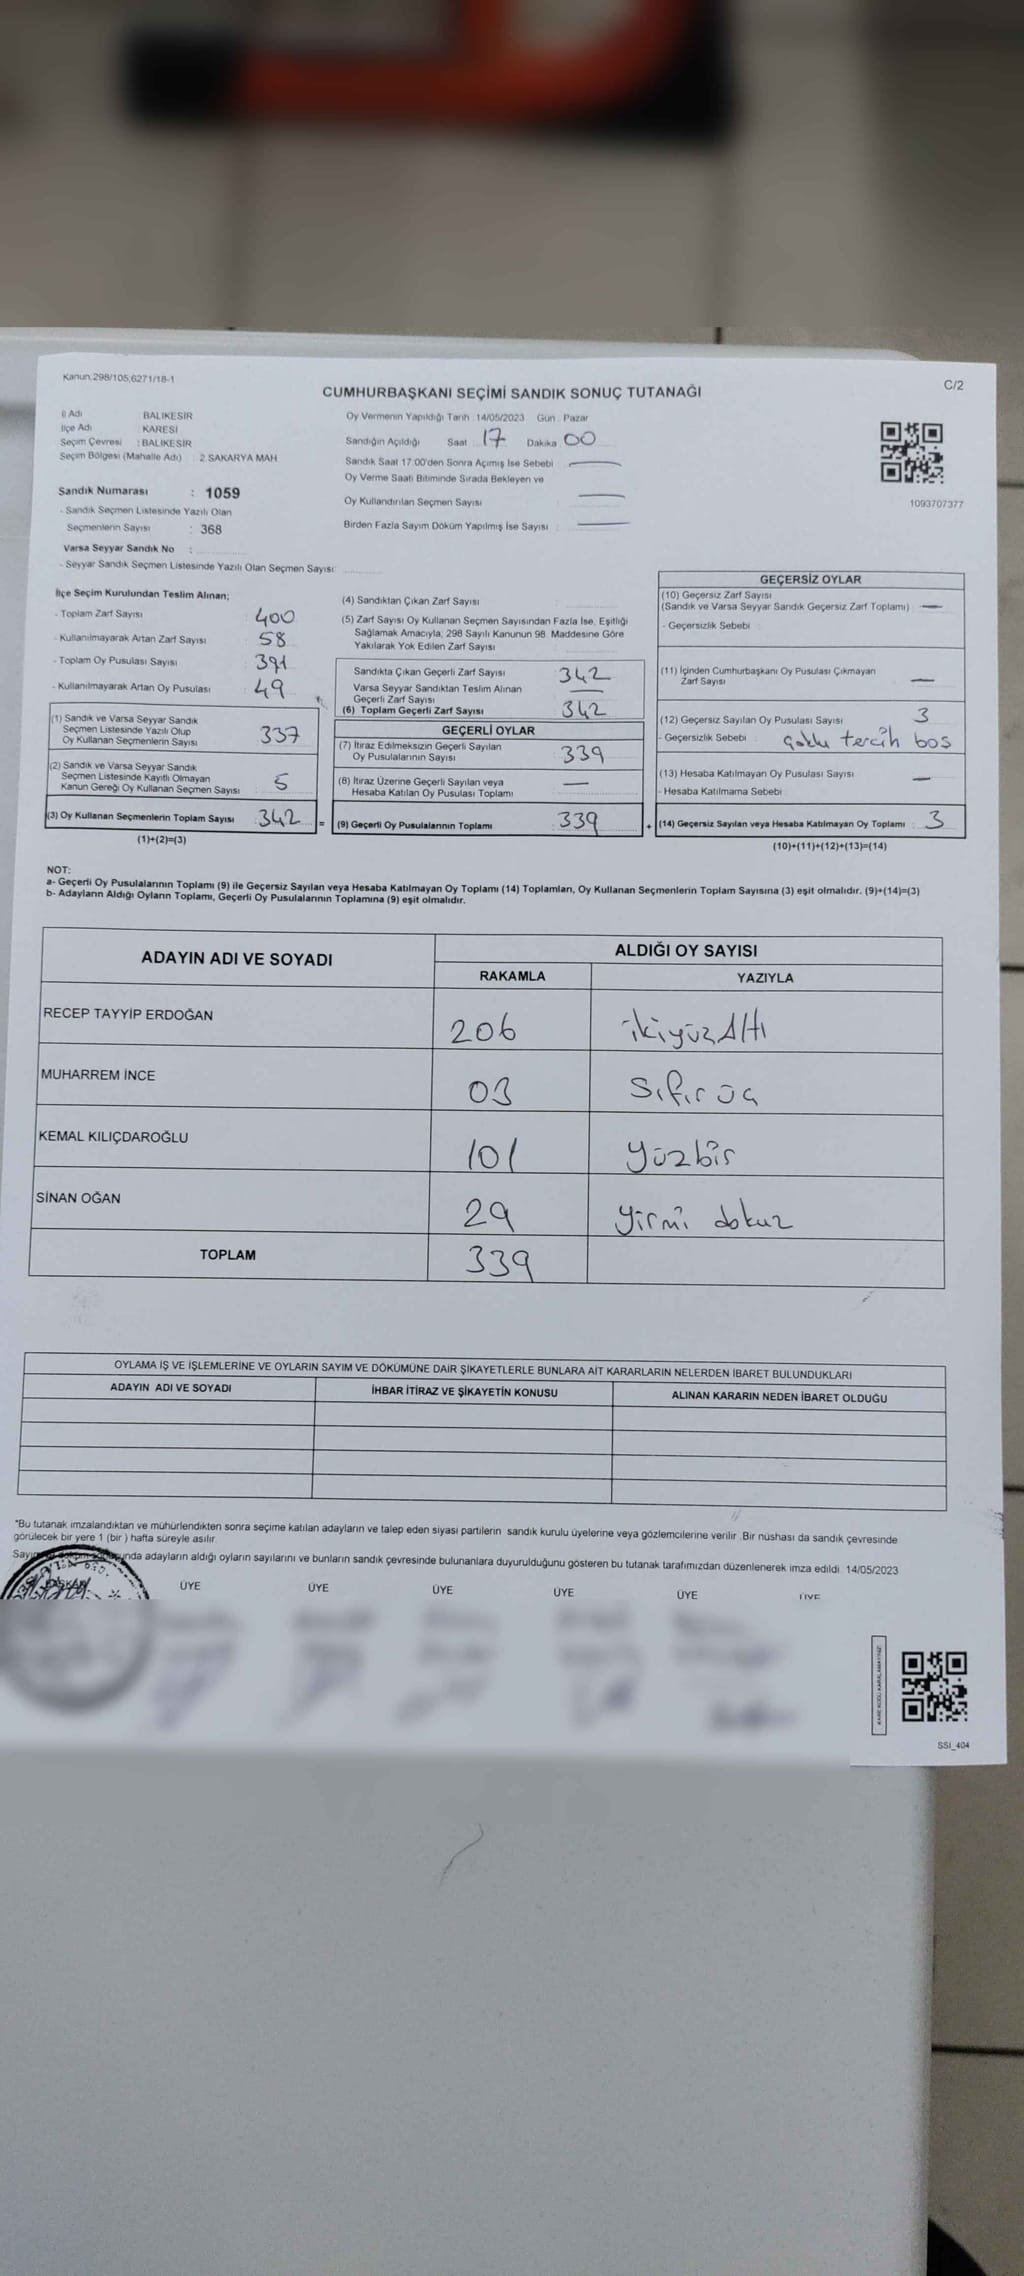 Kanun.298/105,6271/18-1
C/2
CUMHURBAŞKANI SEÇİMİ SANDIK SONUÇ TUTANAĞI
İl Adı : BALIKESİR
İlçe Adı : KARESİ
Seçim Çevresi : BALIKESİR
Seçim Bölgesi (Mahalle Adı) : 2 SAKARYA MAH
Sandık Numarası : 1059
- Sandık Seçmen Listesinde Yazılı Olan
Seçmenlerin Sayısı : 368
Varsa Seyyar Sandık No :
- Seyyar Sandık Seçmen Listesinde Yazılı Olan Seçmen Sayısı:
Oy Vermenin Yapıldığı Tarih : 14/05/2023 Gün : Pazar
Sandığın Açıldığı Saat : 17 Dakika : 00
Sandık Saat 17:00'den Sonra Açımış İse Sebebi : —
Oy Verme Saati Bitiminde Sırada Bekleyen ve
Oy Kullandırılan Seçmen Sayısı : —
Birden Fazla Sayım Döküm Yapılmış İse Sayısı : —
1093707377
İlçe Seçim Kurulundan Teslim Alınan;
- Toplam Zarf Sayısı : 400
- Kullanılmayarak Artan Zarf Sayısı : 58
- Toplam Oy Pusulası Sayısı : 391
- Kullanılmayarak Artan Oy Pusulası : 49
(1) Sandık ve Varsa Seyyar Sandık
Seçmen Listesinde Yazılı Olup
Oy Kullanan Seçmenlerin Sayısı : 337
(2) Sandık ve Varsa Seyyar Sandık
Seçmen Listesinde Kayıtlı Olmayan
Kanun Gereği Oy Kullanan Seçmen Sayısı : 5
(3) Oy Kullanan Seçmenlerin Toplam Sayısı : 342 =
(1)+(2)=(3)
(4) Sandıktan Çıkan Zarf Sayısı :
(5) Zarf Sayısı Oy Kullanan Seçmen Sayısından Fazla İse, Eşitliği
Sağlamak Amacıyla; 298 Sayılı Kanunun 98. Maddesine Göre
Yakılarak Yok Edilen Zarf Sayısı :
Sandıkta Çıkan Geçerli Zarf Sayısı : 342
Varsa Seyyar Sandıktan Teslim Alınan
Geçerli Zarf Sayısı : —
(6) Toplam Geçerli Zarf Sayısı : 342
GEÇERLİ OYLAR
(7) İtiraz Edilmeksizin Geçerli Sayılan
Oy Pusulalarının Sayısı : 339
(8) İtiraz Üzerine Geçerli Sayılan veya
Hesaba Katılan Oy Pusulası Toplamı : —
(9) Geçerli Oy Pusulalarının Toplamı : 339 +
GEÇERSİZ OYLAR
(10) Geçersiz Zarf Sayısı
(Sandık ve Varsa Seyyar Sandık Geçersiz Zarf Toplamı) : —
- Geçersizlik Sebebi :
(11) İçinden Cumhurbaşkanı Oy Pusulası Çıkmayan
Zarf Sayısı : —
(12) Geçersiz Sayılan Oy Pusulası Sayısı : 3
- Geçersizlik Sebebi : çoklu tercih boş
(13) Hesaba Katılmayan Oy Pusulası Sayısı : —
- Hesaba Katılmama Sebebi :
(14) Geçersiz Sayılan veya Hesaba Katılmayan Oy Toplamı : 3
(10)+(11)+(12)+(13)=(14)
NOT:
a- Geçerli Oy Pusulalarının Toplamı (9) ile Geçersiz Sayılan veya Hesaba Katılmayan Oy Toplamı (14) Toplamları, Oy Kullanan Seçmenlerin Toplam Sayısına (3) eşit olmalıdır. (9)+(14)=(3)
b- Adayların Aldığı Oyların Toplamı, Geçerli Oy Pusulalarının Toplamına (9) eşit olmalıdır.
ADAYIN ADI VE SOYADI ALDIĞI OY SAYISI
RAKAMLA YAZIYLA
RECEP TAYYİP ERDOĞAN 206 ikiyüzAltı
MUHARREM İNCE 03 Sıfır üç
KEMAL KILIÇDAROĞLU 101 yüzbir
SİNAN OĞAN 29 yirmi dokuz
TOPLAM 339
OYLAMA İŞ VE İŞLEMLERİNE VE OYLARIN SAYIM VE DÖKÜMÜNE DAİR ŞİKAYETLERLE BUNLARA AİT KARARLARIN NELERDEN İBARET BULUNDUKLARI
ADAYIN ADI VE SOYADI İHBAR İTİRAZ VE ŞİKAYETİN KONUSU ALINAN KARARIN NEDEN İBARET OLDUĞU
"Bu tutanak imzalandıktan ve mühürlendikten sonra seçime katılan adayların ve talep eden siyasi partilerin sandık kurulu üyelerine veya gözlemcilerine verilir. Bir nüshası da sandık çevresinde
görülecek bir yere 1 (bir ) hafta süreyle asılır.
adayların aldığı oyların sayılarını ve bunların sandık çevresinde bulunanlara duyurulduğunu gösteren bu tutanak tarafımızdan düzenlenerek imza edildi. 14/05/2023
ÜYE ÜYE ÜYE ÜYE ÜYE ÜYE
SSI_404